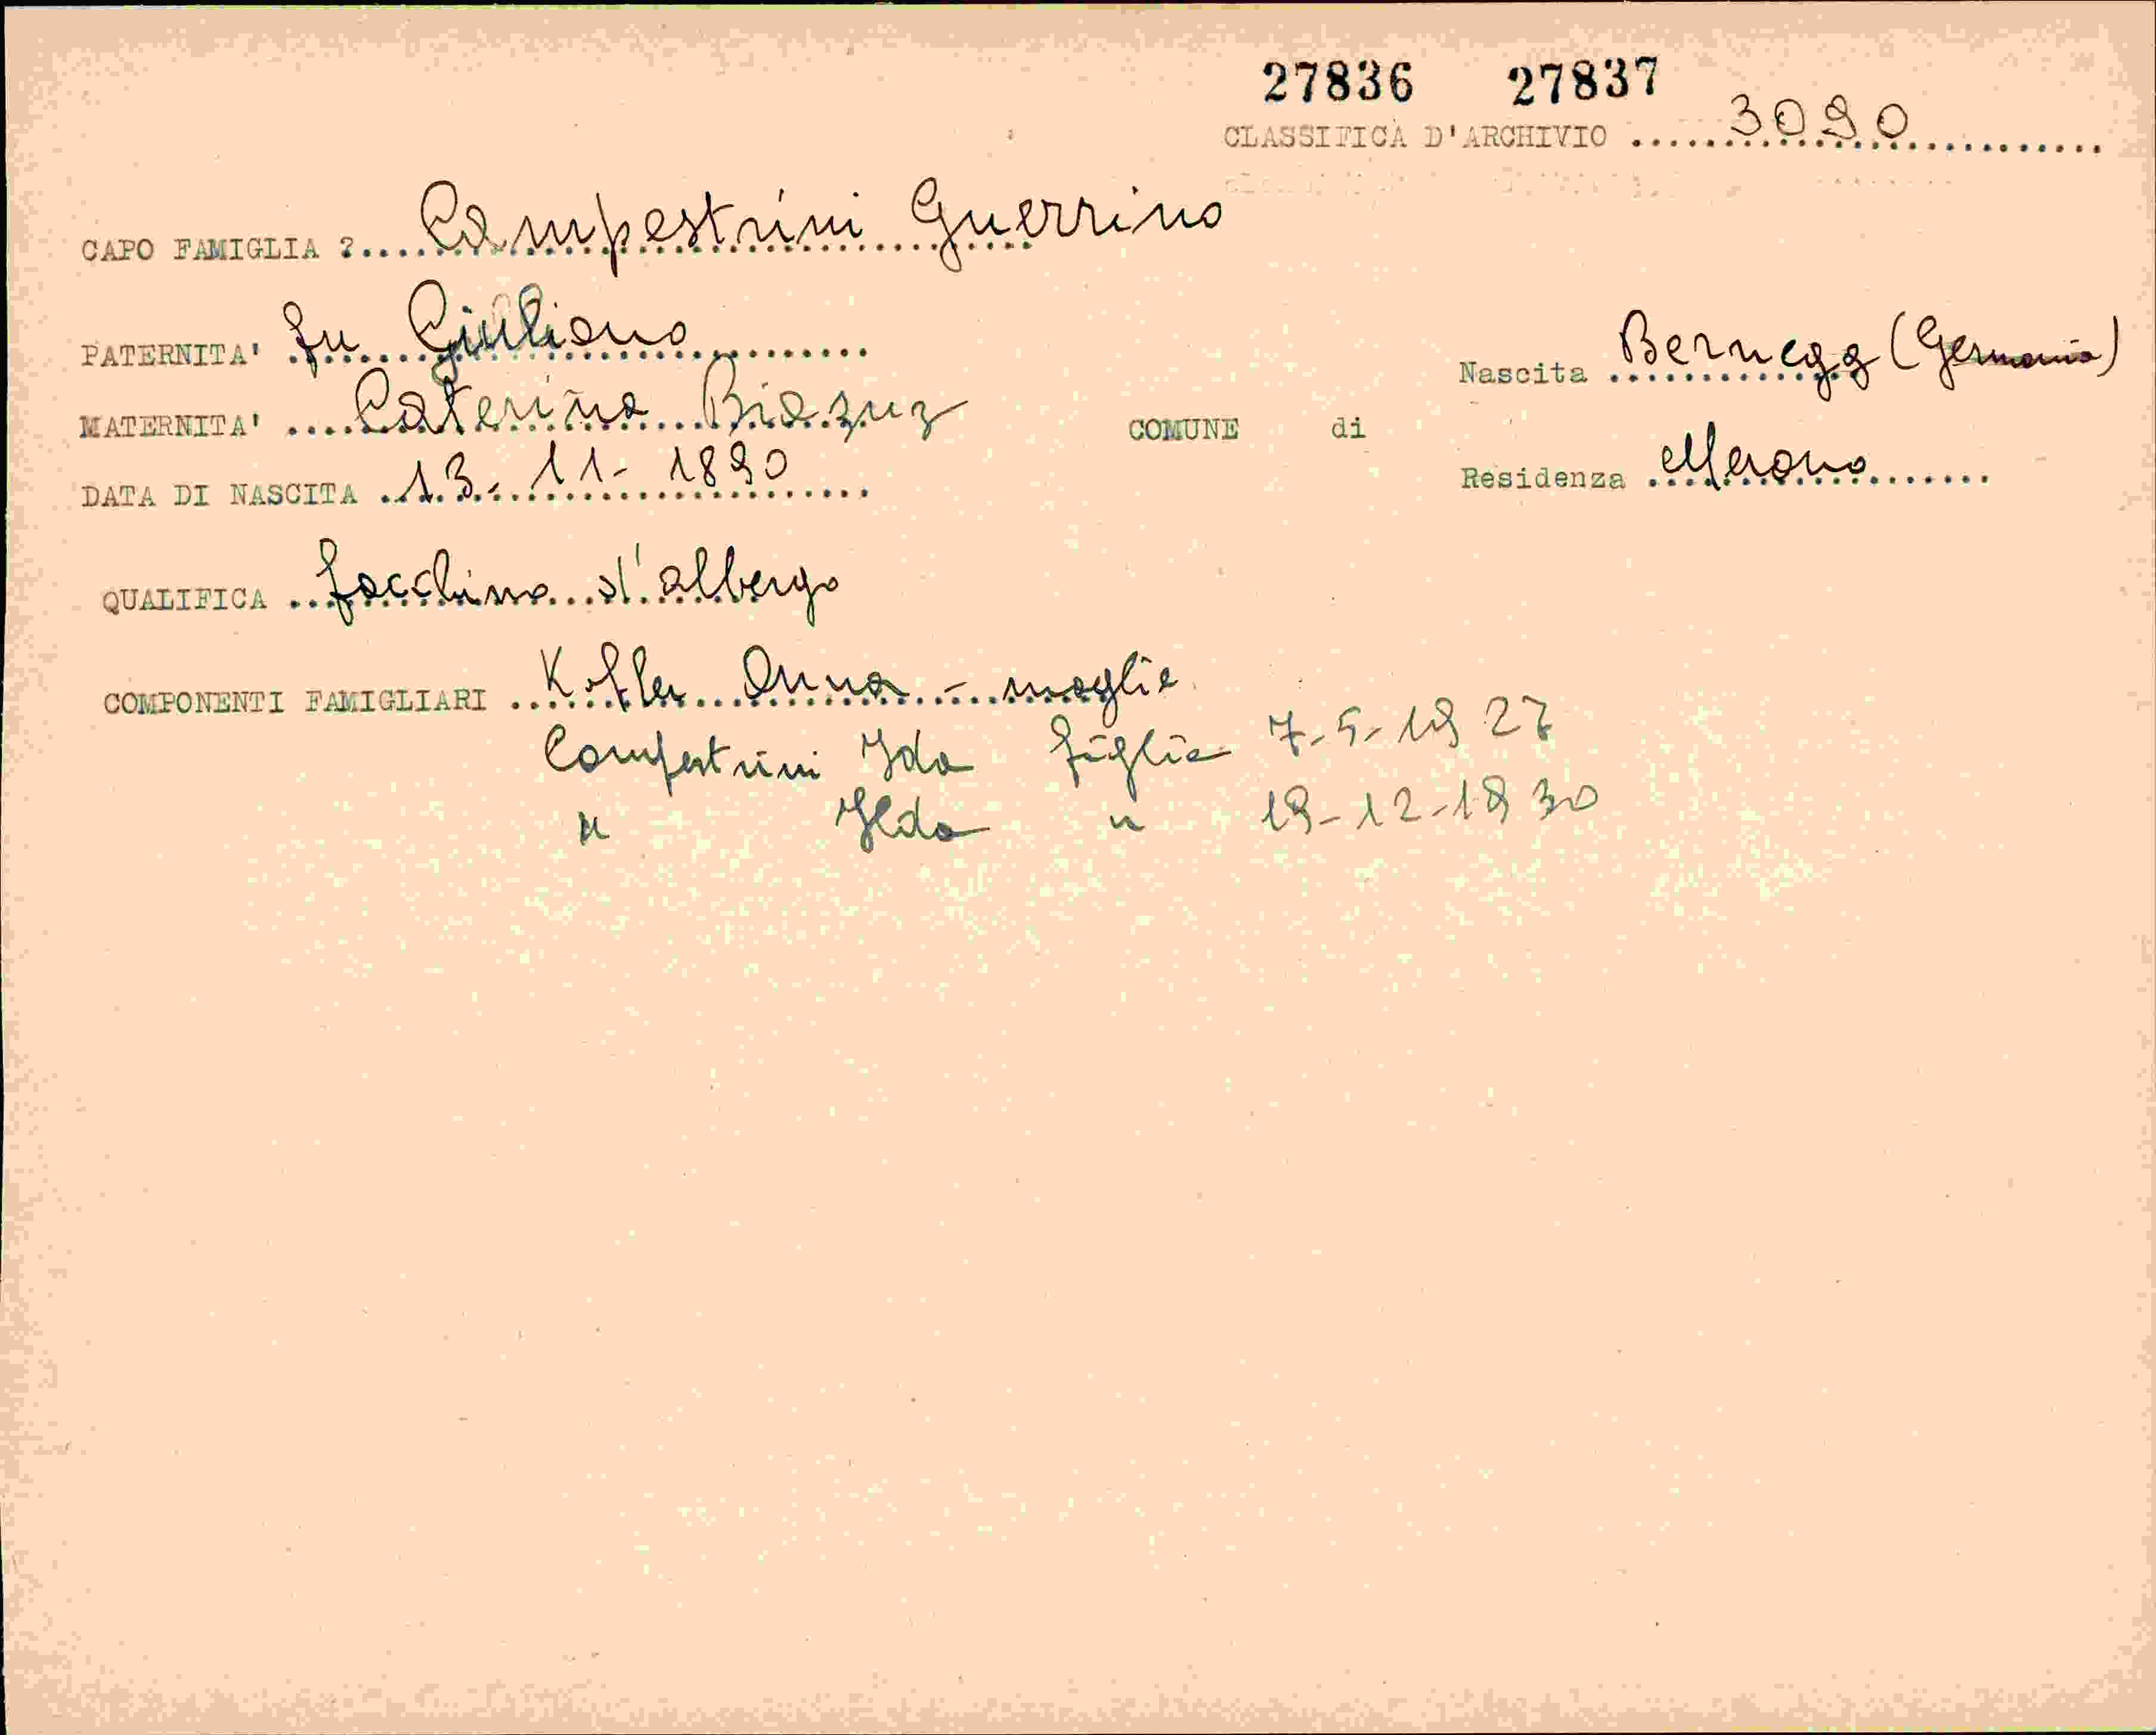 27836 27837
CLASSIFICA D'ARCHIVIO ..... 3090
CAPO FAMIGLIA ?.... Campestrini Guerrino
PATERNITA' fu Giuliano
MATERNITA' .... Caterina
DATA DI NASCITA . 13-11-1890
Nascita Bernegg (Germania)
COMUNE di
Residenza Merano
QUALIFICA .. facchino d'albergo
COMPONENTI FAMIGLIARI .. Kofler Anna - moglie
Campestrini Ida figlia 7-5-1927
" Ilda " 19-12-1930